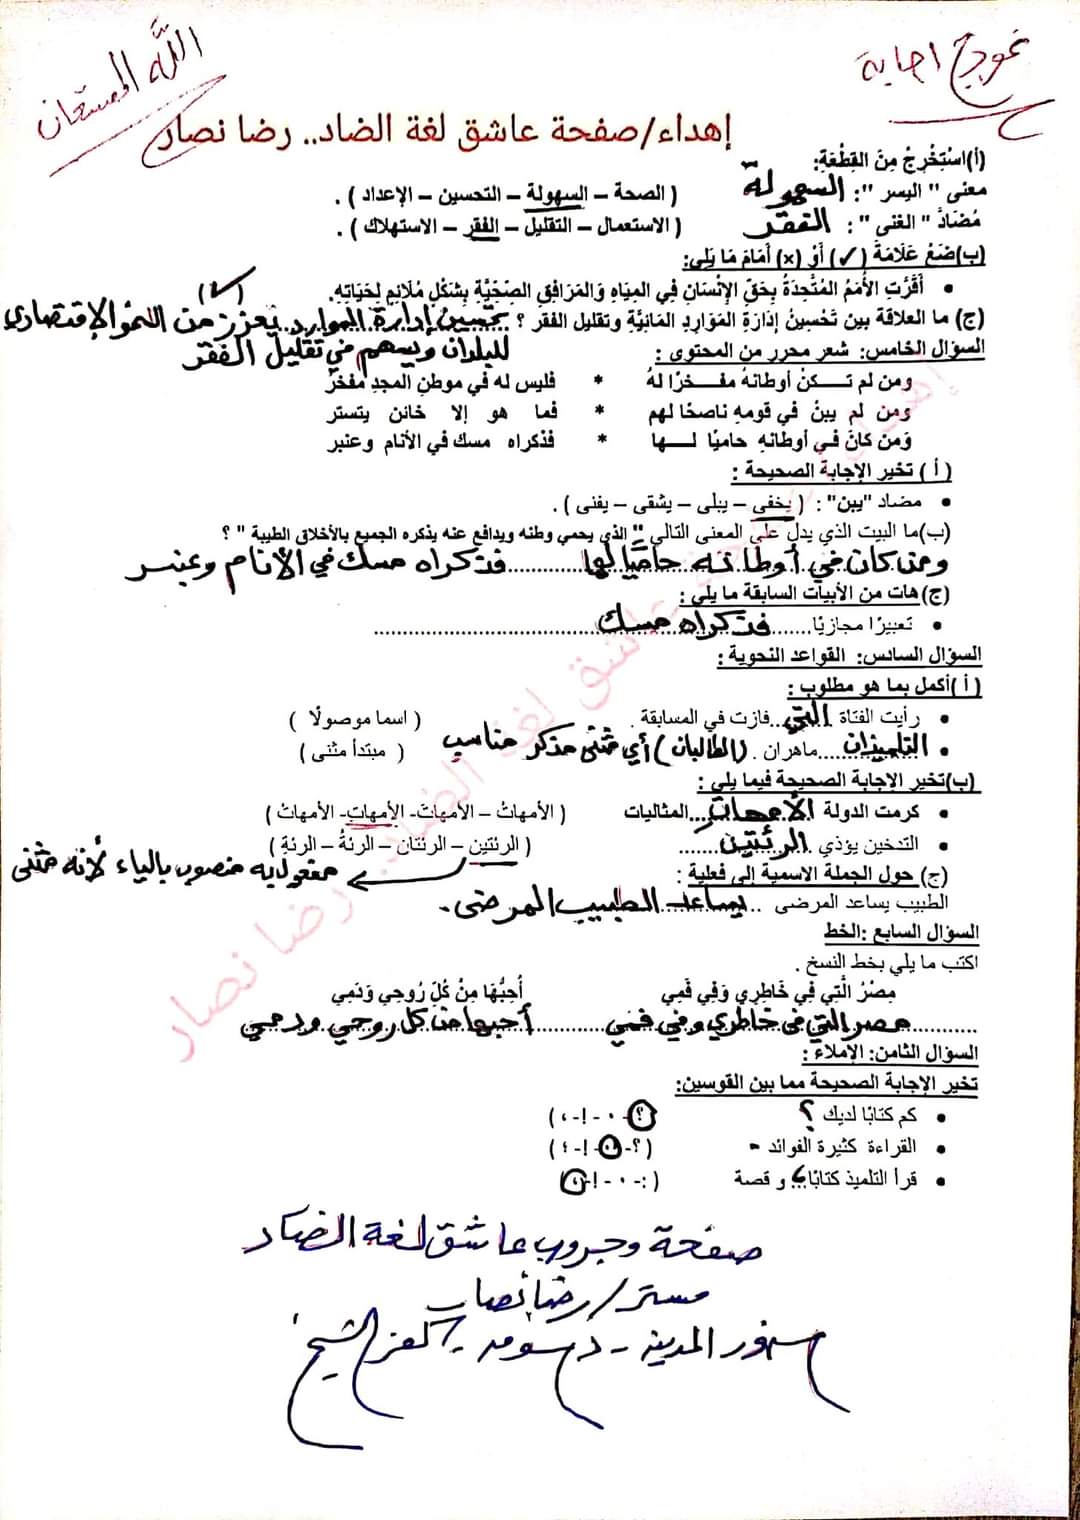 نموذج اجابة
الله المستعان
إهداء/صفحة عاشق لغة الضاد.. رضا نصار
(أ)اسْتَخْرِجْ مِنَ القِطْعَةِ:
معنى " اليسر ": السهولة ( الصحة – السهولة – التحسين – الإعداد ) .
مُضَادَّ " الغنى " : الفقر ( الاستعمال – التقليل – الفقر – الاستهلاك ) .
(ب)ضَعْ عَلَامَةَ (✓) أَوْ (×) أَمَامَ مَا يَلِي:
• أَقَرَّتِ الأُمَمُ المُتَّحِدَةُ بِحَقِّ الإِنْسَانِ فِي المِيَاهِ وَالمَرَافِقِ الصِّحِّيَّةِ بِشَكْلٍ مُلَائِمٍ لِحَيَاتِهِ. (✓)
(ج) ما العلاقة بين تَحْسِينُ إدَارَةِ المَوَارِدِ المَائِيَّةِ وتقليل الفقر ؟ بتحسين إدارة الموارد تعزز من النمو الإقتصادي
للبلدان ويسهم في تقليل الفقر
السؤال الخامس: شعر محرر من المحتوى :
ومن لم تـــكنْ أوطانهُ مفــخرًا لهُ * فليس له في موطنِ المجدِ مفخرُ
ومن لم يبنْ في قومهِ ناصحًا لهم * فما هو إلا خائن يتستر
وَمن كانَ فـي أوطانهِ حاميًا لـــها * فذكراه مسك في الأنام وعنبر
( أ ) تخير الإجابة الصحيحة :
• مضاد "يبن" : ( يخفى – يبلى – يشقى – يفنى ) .
(ب)ما البيت الذي يدل على المعنى التالي " الذي يحمي وطنه ويدافع عنه يذكره الجميع بالأخلاق الطيبة " ؟
ومن كان في أوطانه حاميًا لها فذكراه مسك في الأنام وعنبر
(ج) هات من الأبيات السابقة ما يلي :
• تعبيرًا مجازيًا فذكراه مسك
السؤال السادس: القواعد النحوية :
( أ )أكمل بما هو مطلوب :
• رأيت الفتاة التي فازت في المسابقة . ( اسما موصولًا )
• التلميذان ماهران . (الطالبان) أي مثنى مذكر مناسب ( مبتدأ مثنى )
(ب)تخير الإجابة الصحيحة فيما يلي :
• كرمت الدولة الأمهاتِ المثاليات ( الأمهاتُ – الأمهاتَ- الأمهاتِ- الأمهاتُ )
• التدخين يؤذي الرئتين ( الرئتين – الرئتان – الرئةُ – الرئةِ )
مفعول به منصوب بالياء لأنه مثنى
(ج) حول الجملة الاسمية إلى فعلية :
الطبيب يساعد المرضى يساعد الطبيب المرضى.
السؤال السابع :الخط
اكتب ما يلي بخط النسخ .
مِصْرُ الَّتِي فِي خَاطِرِي وَفِي فَمِي أُحِبُّهَا مِنْ كُلِّ رُوحِي وَدَمِي
مصر التي في خاطري وفي فمي أحبها من كل روحي ودمي
السؤال الثامن: الإملاء :
تخير الإجابة الصحيحة مما بين القوسين:
• كم كتابًا لديك ؟ (؟- . -!- ،)
• القراءة كثيرة الفوائد . (؟- . -!- ،)
• قرأ التلميذ كتابًا ، و قصة (:- . -!- ،)
صفحة وجروب عاشق لغة الضاد
مستر/ رضا نصار
سنهور المدينة - دسوق - كفر الشيخ